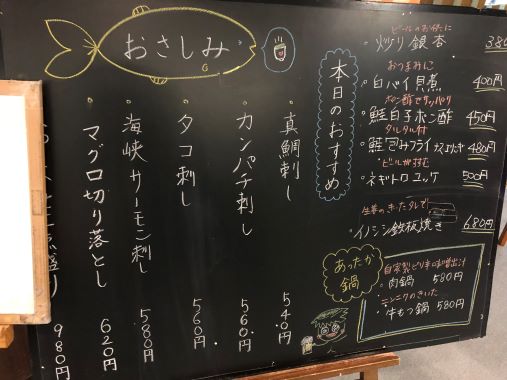 本日のおすすめ
ビールのお供に
・炒り銀杏 380
おつまみに
・白バイ貝煮 400円
ポン酢でサッパリ
・鮭白子ポン酢 450円
タルタル付
・鮭包みフライ 480円
ビールが進む
・ネギトロユッケ 500円
生姜のきいたタレで
・イノシシ鉄板焼き 680円
あったか鍋
自家製ピリ辛味噌出汁
・肉鍋 580円
ニンニクのきいた
・牛もつ鍋 580円
おさしみ
・真鯛刺し 540円
・カンパチ刺し 560円
・タコ刺し 560円
・海峡サーモン刺し 580円
・マグロ切り落とし 620円
盛り 980円